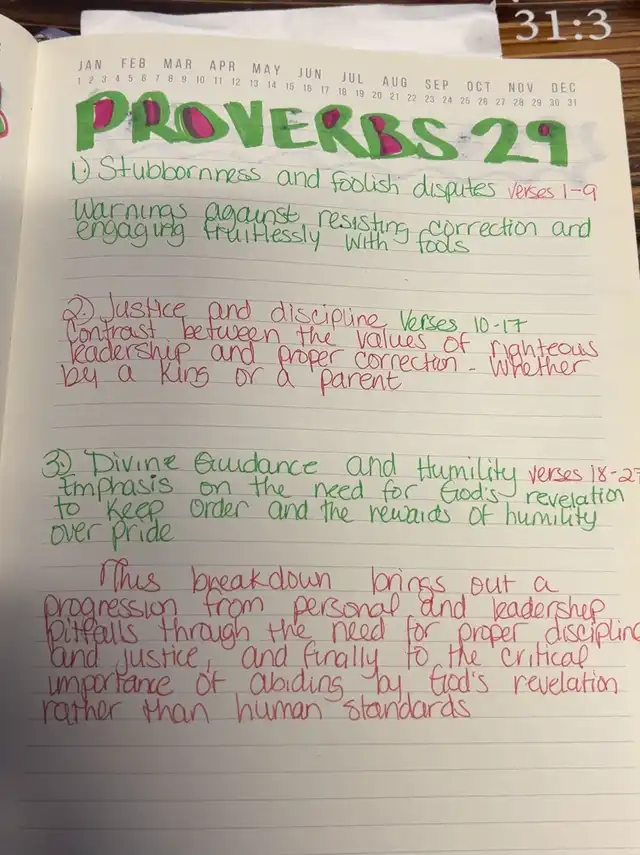 31:3
JAN FEB MAR APR MAY JUN JUL AUG SEP OCT NOV DEC
1 2 3 4 5 6 7 8 9 10 11 12 13 14 15 16 17 18 19 20 21 22 23 24 25 26 27 28 29 30 31
PROVERBS 29
1) Stubbornness and foolish disputes verses 1-9
Warnings against resisting correction and
engaging fruitlessly with fools
2) Justice and discipline Verses 10-17
Contrast between the values of righteous
leadership and proper correction - Whether
by a King or a parent
3) Divine Guidance and Humility verses 18-27
Emphasis on the need for God's revelation
to keep order and the rewards of humility
over pride
This breakdown brings out a
progression from personal and leadership
pitfalls through the need for proper discipline
and justice, and finally to the critical
importance of abiding by God's revelation
rather than human standards